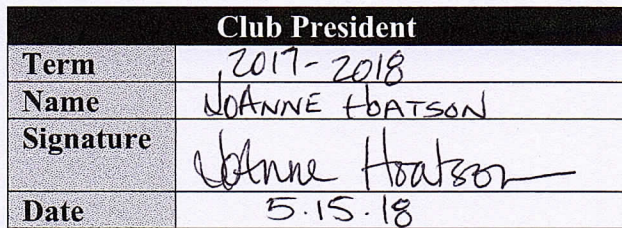 Club President
Term 2017-2018
Name JOANNE HOATSON
Signature JoAnne Hoatson
Date 5.15.18